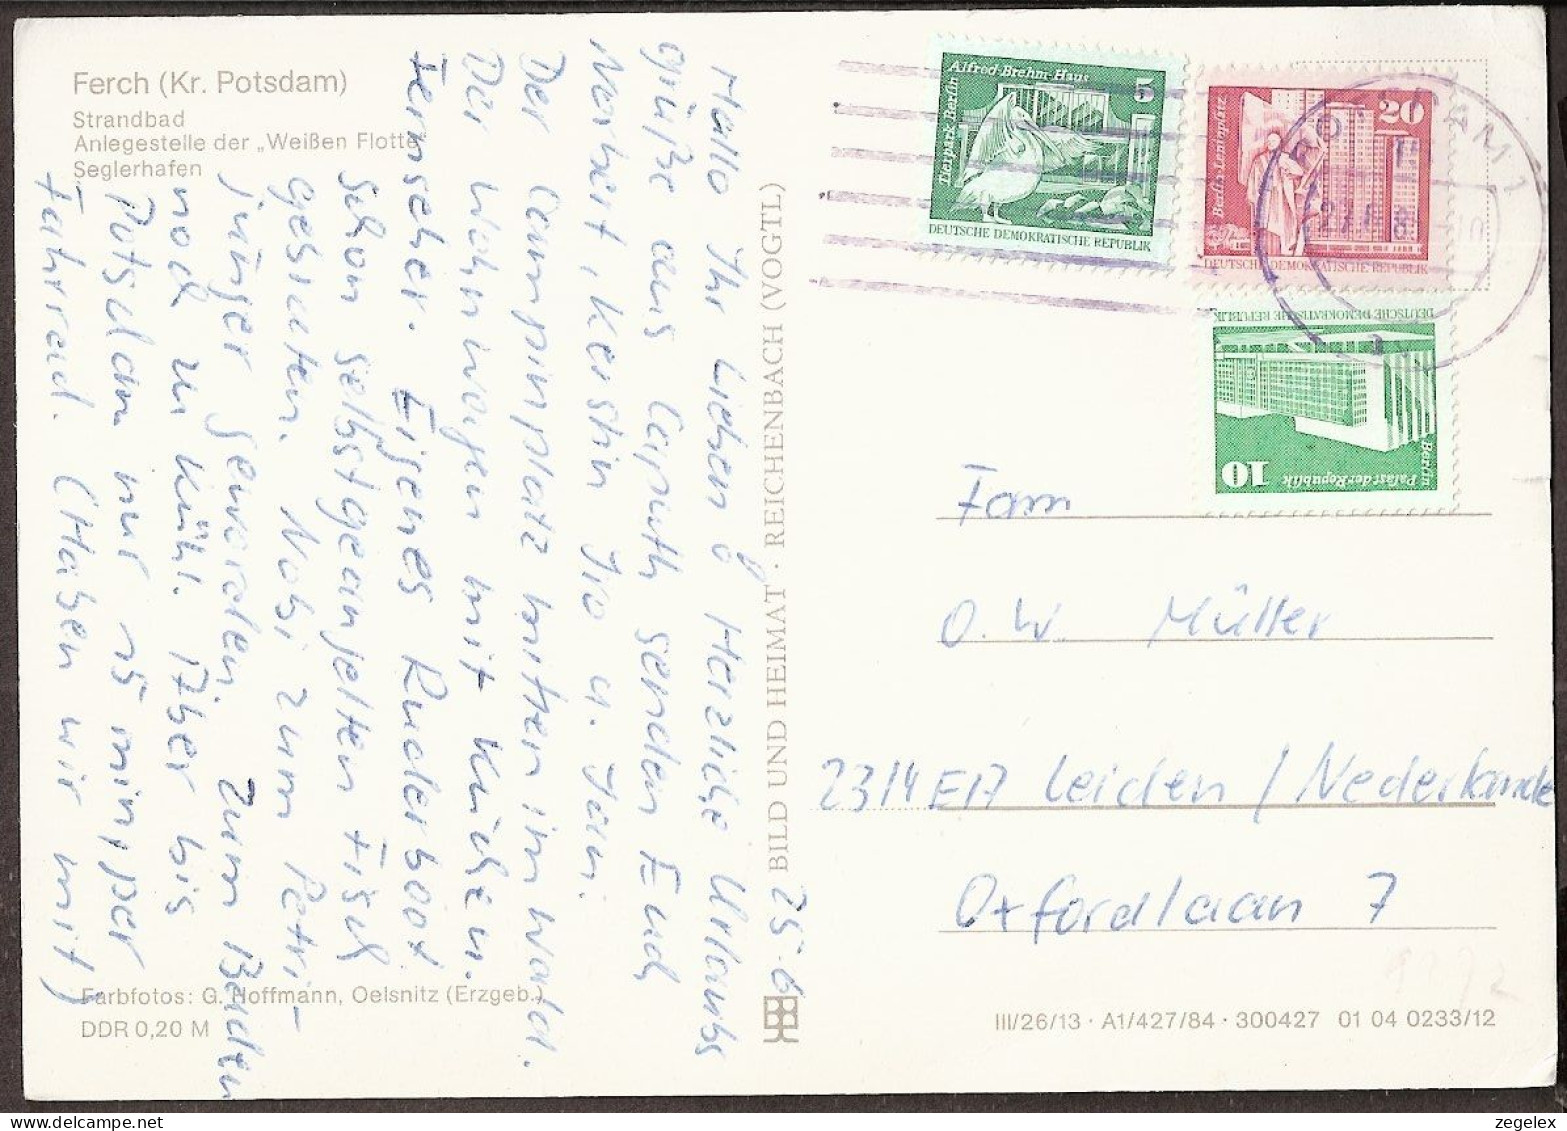 Ferch (Kr. Potsdam)
Strandbad
Anlegestelle der „Weißen Flotte
Seglerhafen
25.6
Hallo Ihr Lieben! Herzliche Urlaubs
grüße aus Caputh senden Euch
Norbert, Kerstin, Ivo u. Jan.
Der Campingplatz mitten im Wald.
Der Wohnwagen mit Küchen.
Fernseher. Eigenes Ruderboot
Schon selbstgeangelten Fisch
gesichten. Nobi zum Petri-
jünger geworden. Zum Baden
noch zu kühl. Aber bis
Potsdam nur 15 min, per
Fahrrad. (Haben wir mit)
Farbfotos: G. Hoffmann, Oelsnitz (Erzgeb.)
DDR 0,20 M
BILD UND HEIMAT · REICHENBACH (VOGTL)
Alfred-Brehm-Haus
5
Tierpark Berlin
DEUTSCHE DEMOKRATISCHE REPUBLIK
20
Berlin, Leninplatz
DEUTSCHE DEMOKRATISCHE REPUBLIK
POTSDAM 1
DEUTSCHE DEMOKRATISCHE REPUBLIK
Berlin
Palast der Republik
10
Fam
O. W. Müller
2314 EA Leiden / Nederlande
Oxfordlaan 7
III/26/13 · A1/427/84 · 300427 01 04 0233/12
zegelex